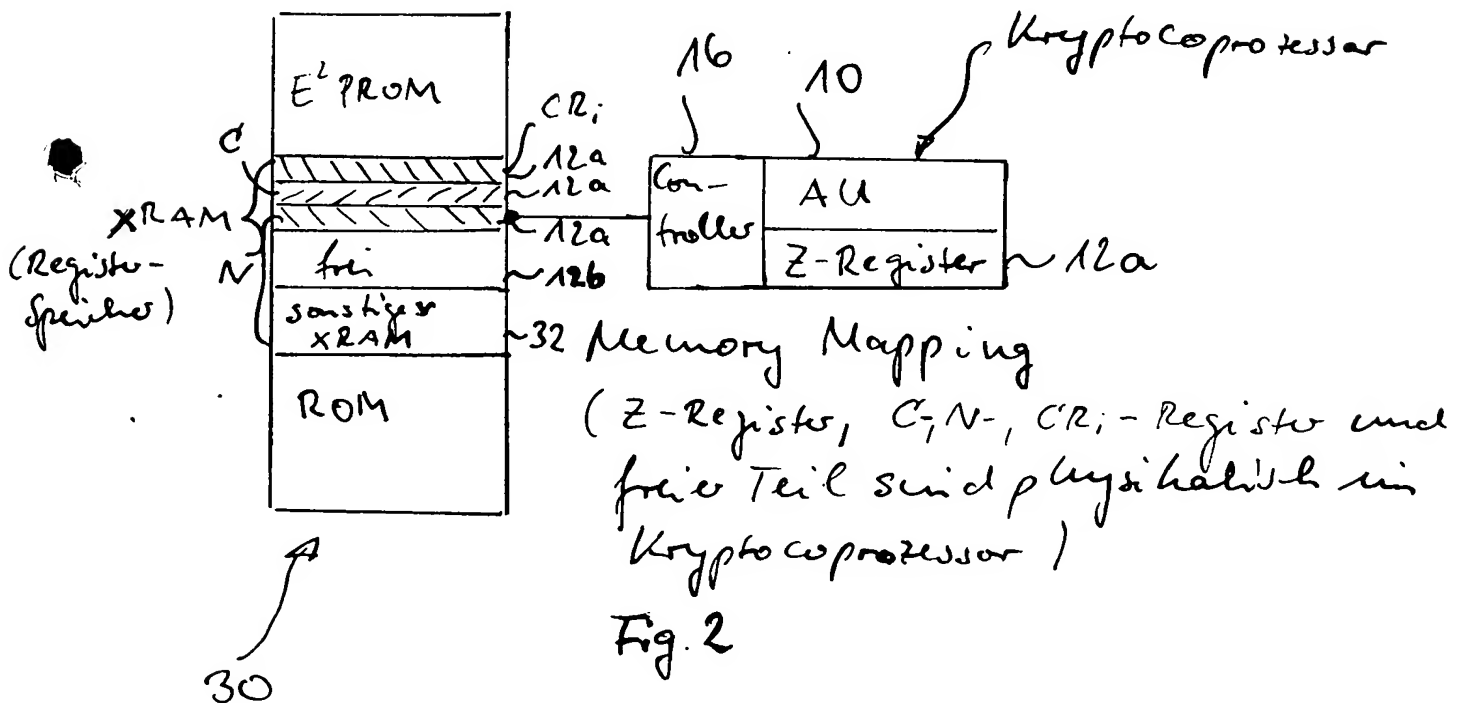 E² PROM
C
XRAM
(Register-
Speicher)
N
frei
sonstiger
XRAM
ROM
CRi
12a
12a
12a
12b
~32
30
16
10
Kryptocoprozessor
Con-
troller
AU
Z-Register
~12a
Memory Mapping
(Z-Register, C-, N-, CRi-Register und
freier Teil sind physikalisch im
Kryptocoprozessor)
Fig. 2